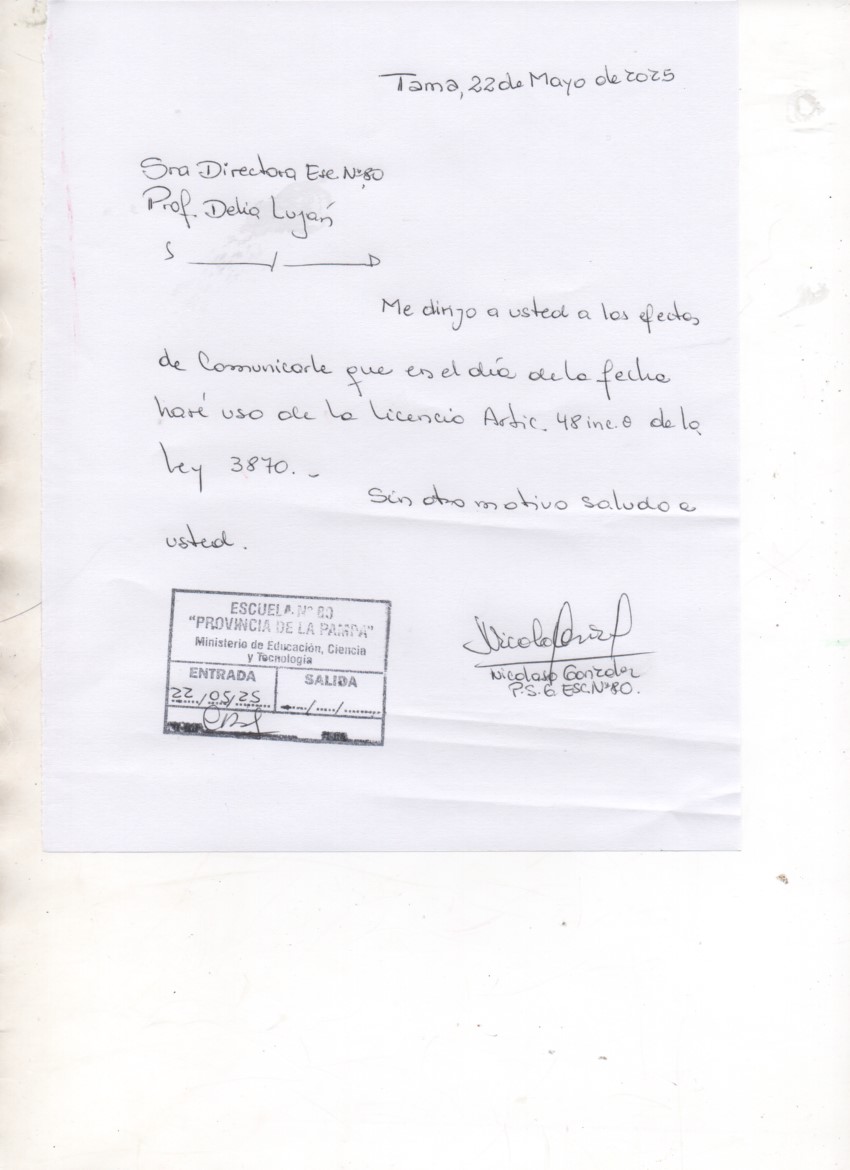 Tama, 22 de Mayo de 2025
Sra Directora Esc. N°80
Prof. Delia Luján
S ________/________ D
Me dirijo a usted a los efectos
de Comunicarle que en el día de la fecha
haré uso de la licencia Artic. 48 inc. 8 de la
Ley 3870.-
Sin otro motivo saludo a
usted.
ESCUELA N° 80
"PROVINCIA DE LA PAMPA"
Ministerio de Educación, Ciencia
y Tecnología
ENTRADA SALIDA
22/05/25 .../.../...
Nicolasa Gonzalez
P.S.G. ESC.N°80.